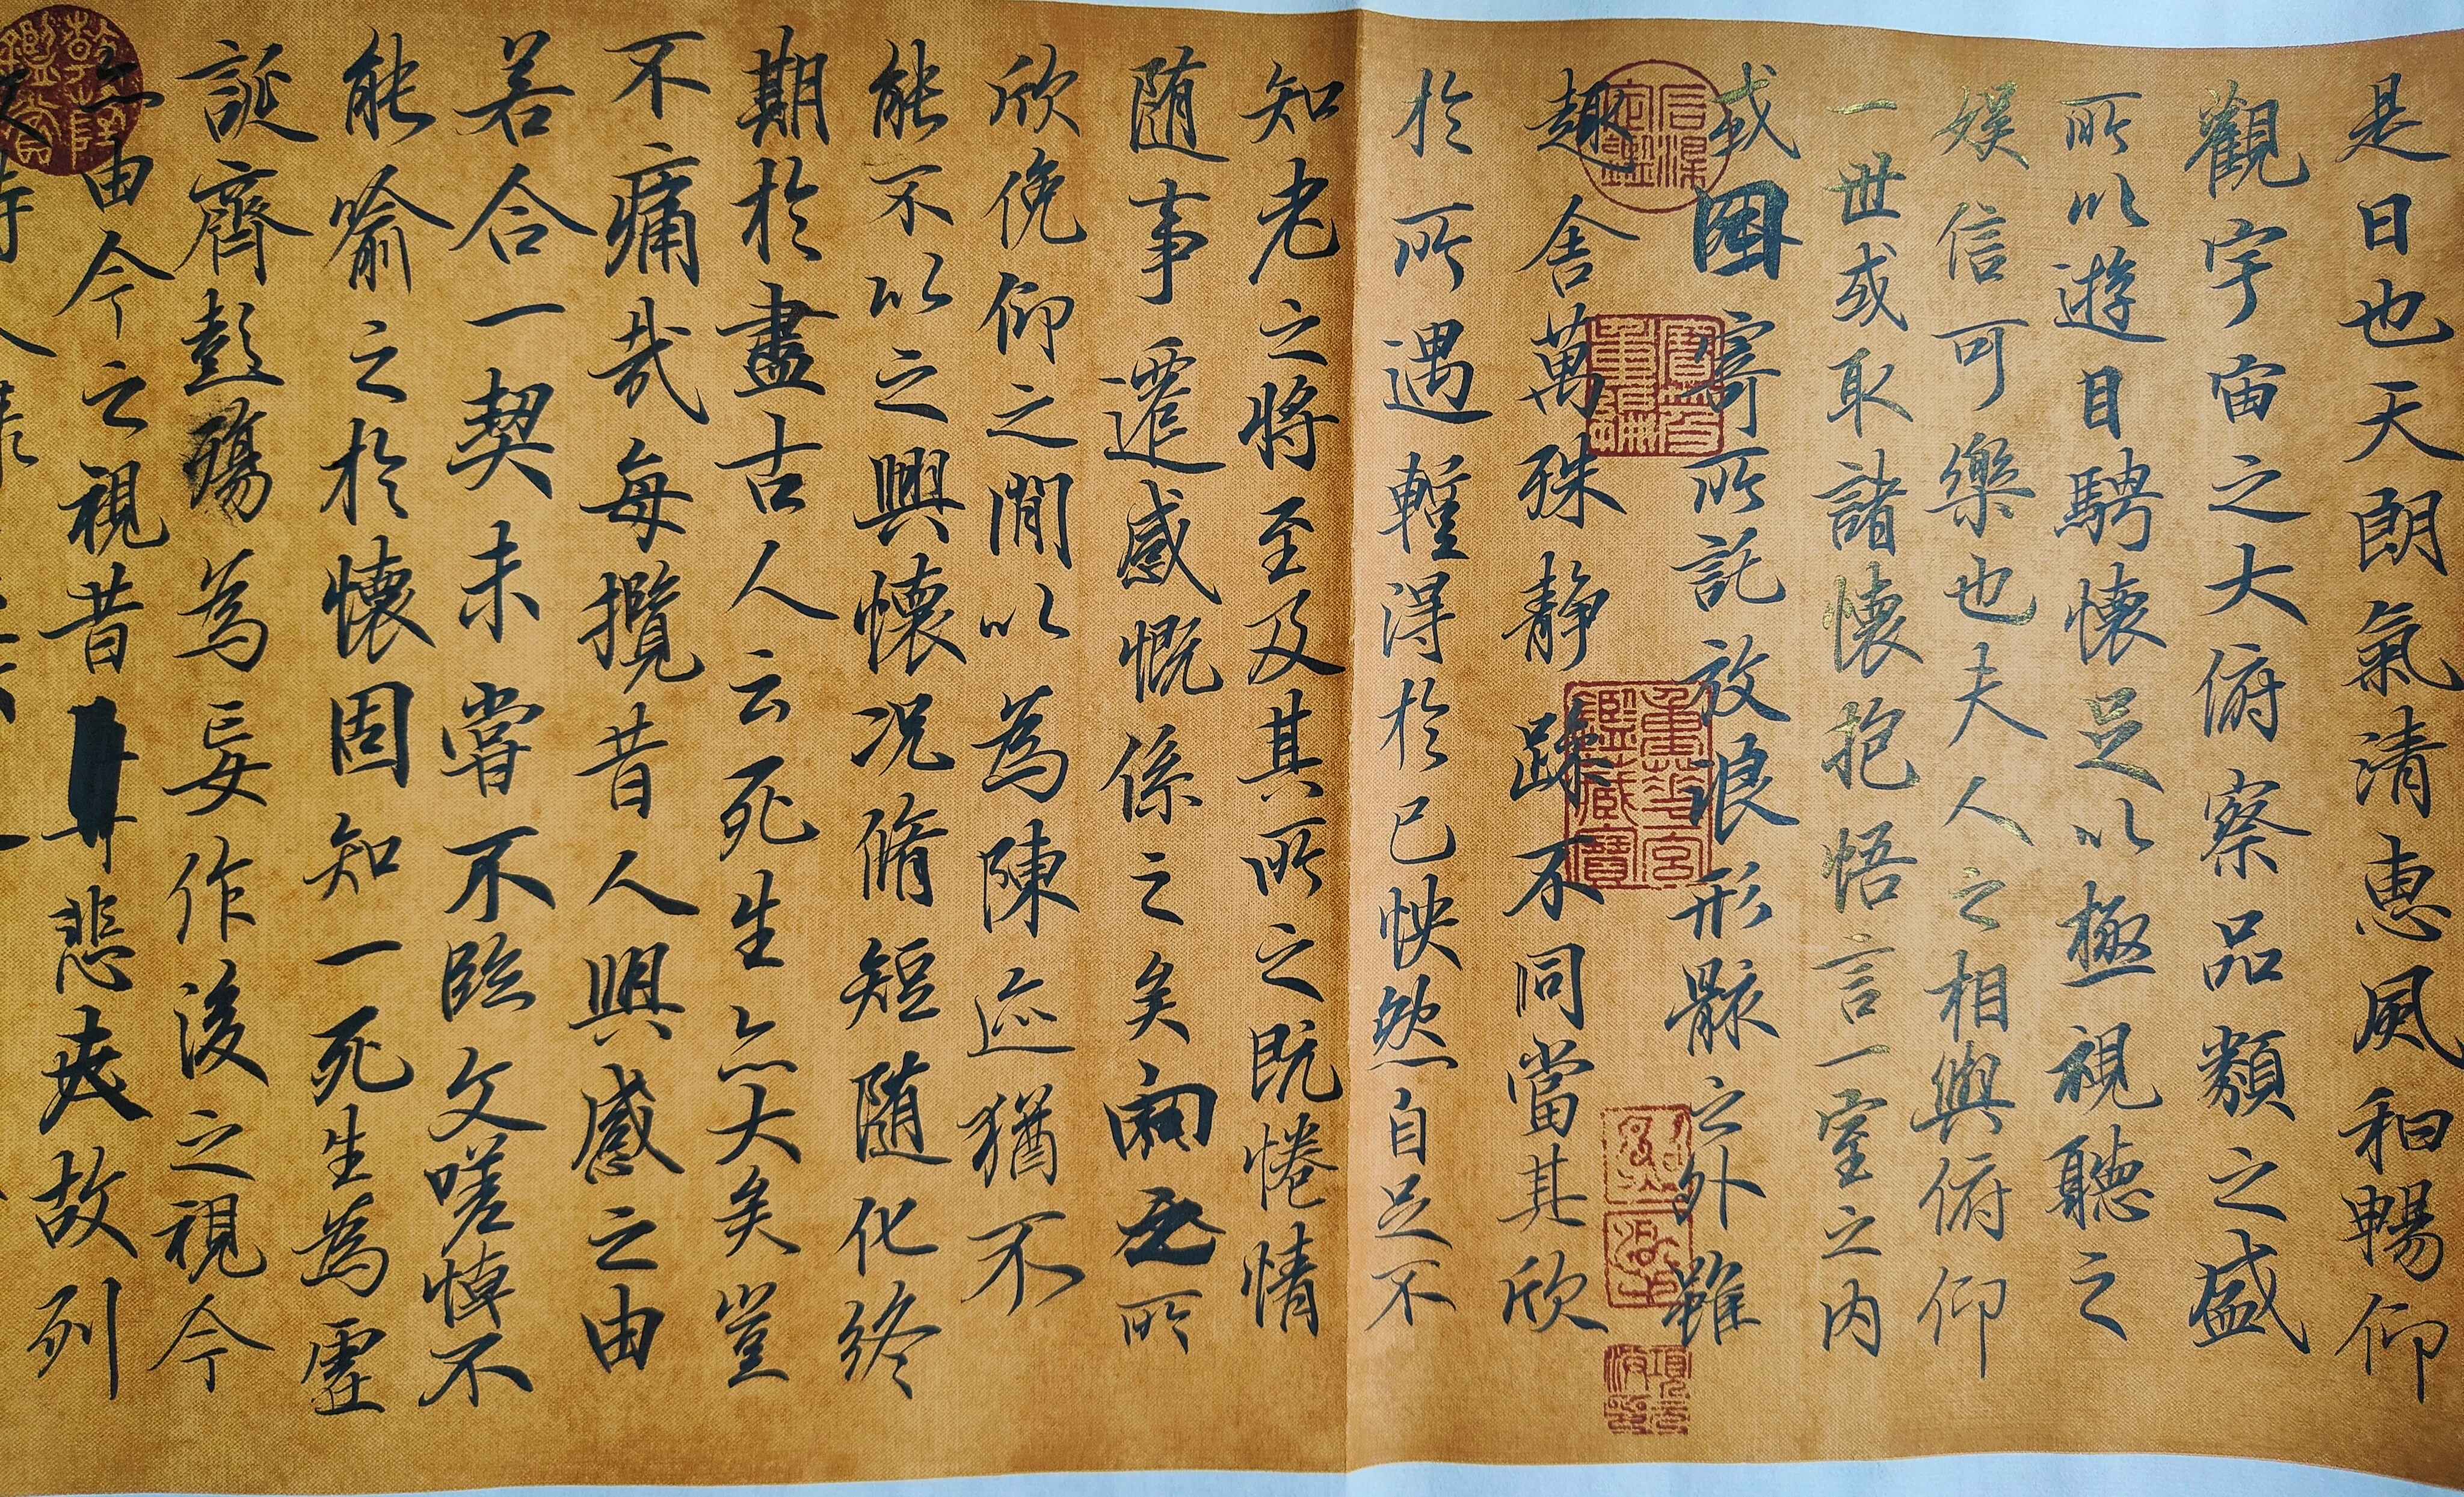 是日也天朗氣清惠風和暢仰
觀宇宙之大俯察品類之盛
所以遊目騁懷足以極視聽之
娛信可樂也夫人之相與俯仰
一世或取諸懷抱悟言一室之內
或因寄所託放浪形骸之外雖
趣舍萬殊靜躁不同當其欣
於所遇暫得於己怏然自足不
知老之將至及其所之既惓情
隨事遷感慨係之矣向之所
欣俛仰之閒以為陳迹猶不
能不以之興懷況脩短隨化終
期於盡古人云死生亦大矣豈
不痛哉每攬昔人興感之由
若合一契未嘗不臨文嗟悼不
能喻之於懷固知一死生為虛
誕齊彭殤為妄作後之視今
亦由今之視昔悲夫故列